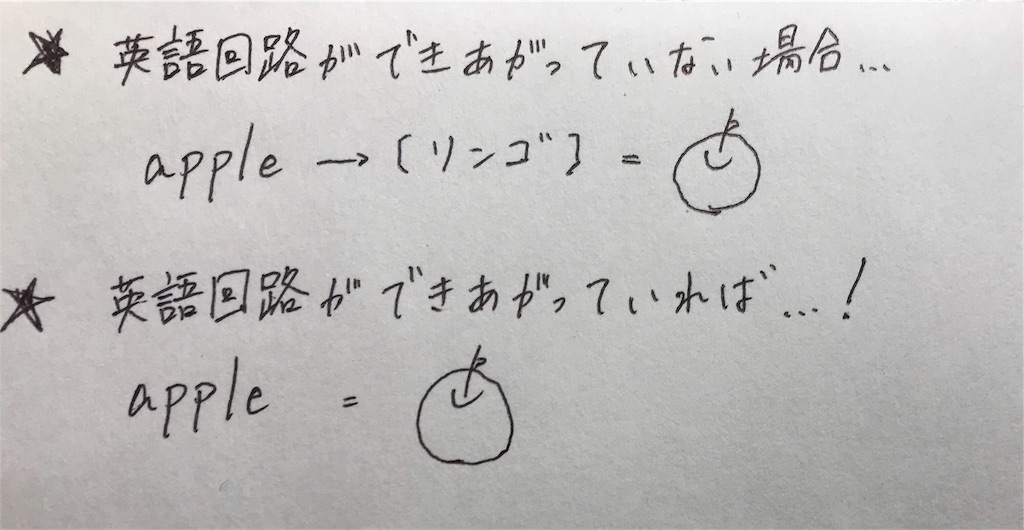 ★ 英語回路ができあがっていない場合...
apple → [リンゴ] =
★ 英語回路ができあがっていれば...!
apple =